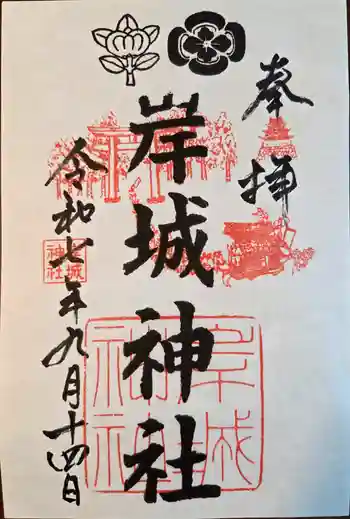 奉拝
岸城神社
令和七年九月十四日
岸城神社
岸城神社